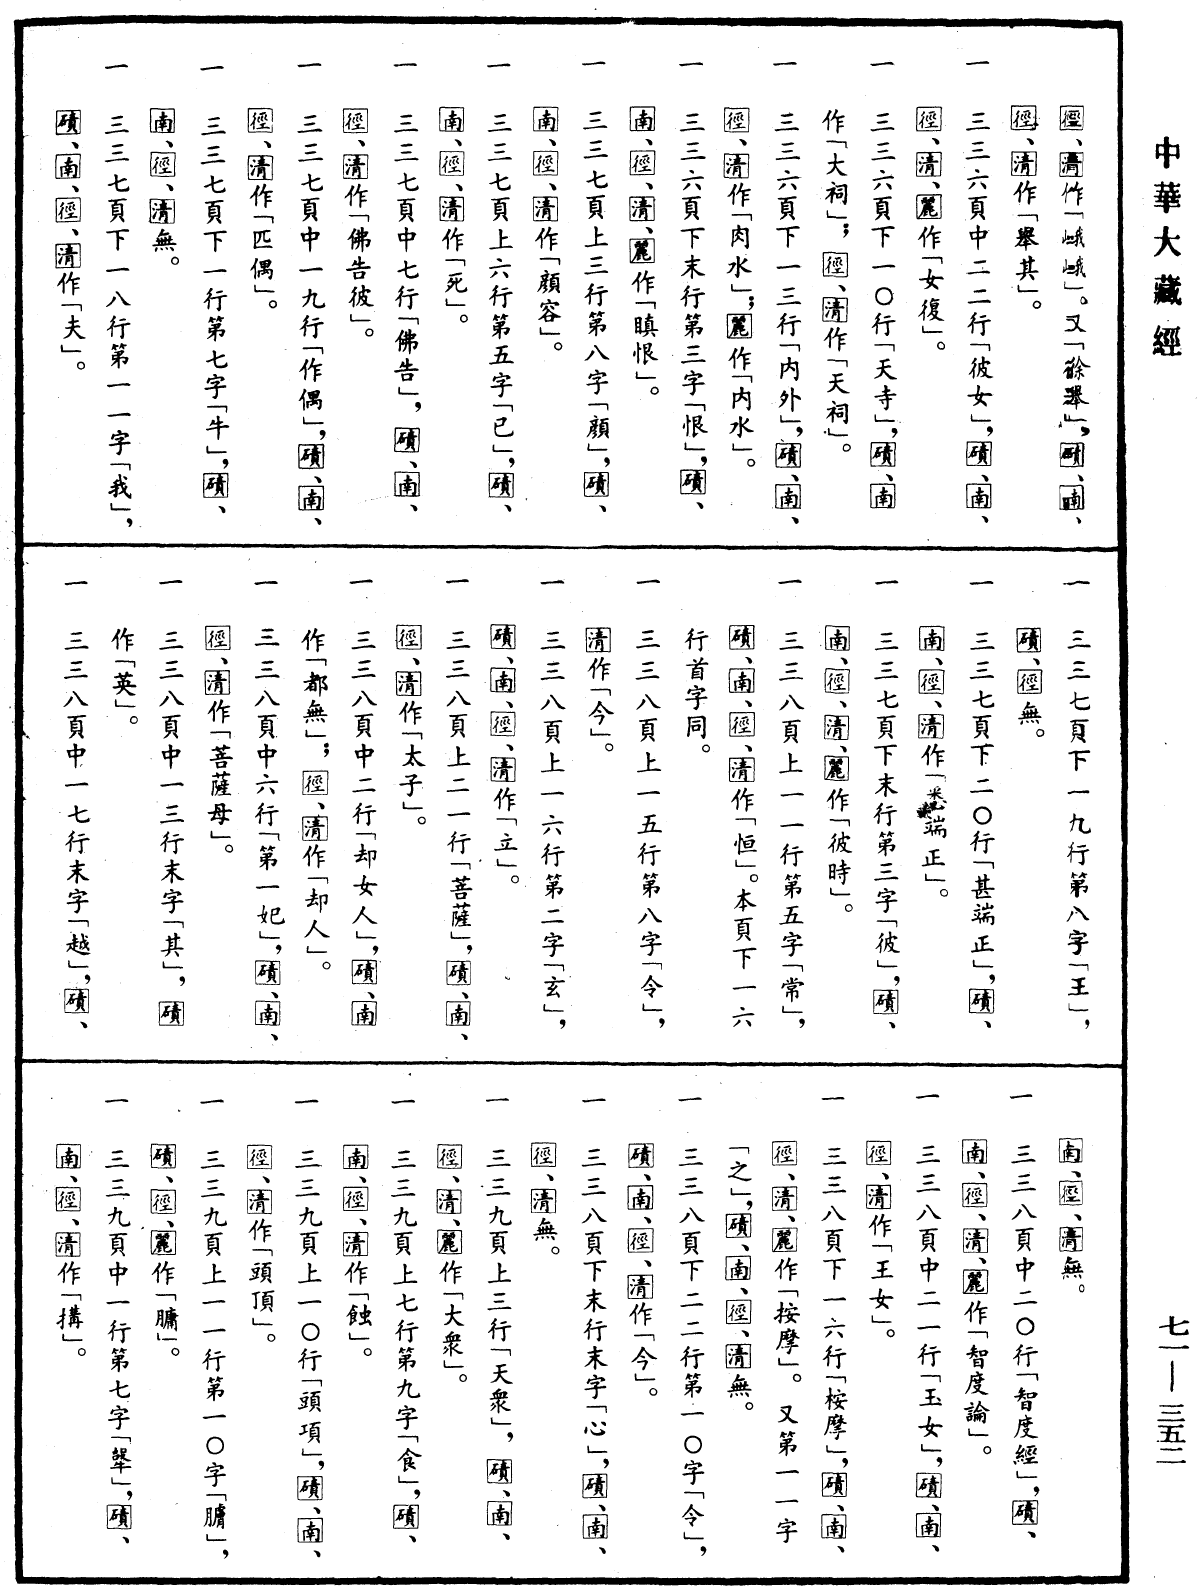 中華大藏經
七一—三五二
徑、清作「峨峨」。又「徐舉」，磧、南、
徑、清作「舉其」。
一 三三六頁中二二行「彼女」，磧、南、
徑、清、麗作「女復」。
一 三三六頁下一〇行「天寺」，磧、南
作「大祠」；徑、清作「天祠」。
一 三三六頁下一三行「內外」，磧、南、
徑、清作「肉水」；麗作「內水」。
一 三三六頁下末行第三字「恨」，磧、
南、徑、清、麗作「瞋恨」。
一 三三七頁上三行第八字「顏」，磧、
南、徑、清作「顏容」。
一 三三七頁上六行第五字「已」，磧、
南、徑、清作「死」。
一 三三七頁中七行「佛告」，磧、南、
徑、清作「佛告彼」。
一 三三七頁中一九行「作偶」，磧、南、
徑、清作「匹偶」。
一 三三七頁下一行第七字「牛」，磧、
南、徑、清無。
一 三三七頁下一八行第一一字「我」，
磧、南、徑、清作「夫」。
一 三三七頁下一九行第八字「王」，
磧、徑無。
一 三三七頁下二〇行「甚端正」，磧、
南、徑、清作「悉端正」。
一 三三七頁下末行第三字「彼」，磧、
南、徑、清、麗作「彼時」。
一 三三八頁上一一行第五字「常」，
磧、南、徑、清作「恒」。本頁下一六
行首字同。
一 三三八頁上一五行第八字「令」，
清作「今」。
一 三三八頁上一六行第二字「玄」，
磧、南、徑、清作「立」。
一 三三八頁上二一行「菩薩」，磧、南、
徑、清作「太子」。
一 三三八頁中二行「却女人」，磧、南
作「都無」；徑、清作「却人」。
一 三三八頁中六行「第一妃」，磧、南、
徑、清作「菩薩母」。
一 三三八頁中一三行末字「其」，磧
作「英」。
一 三三八頁中一七行末字「越」，磧、
南、徑、清無。
一 三三八頁中二〇行「智度經」，磧、
南、徑、清、麗作「智度論」。
一 三三八頁中二一行「玉女」，磧、南、
徑、清作「王女」。
一 三三八頁下一六行「桉摩」，磧、南、
徑、清、麗作「按摩」。又第一一字
「之」，磧、南、徑、清無。
一 三三八頁下二二行第一〇字「令」，
磧、南、徑、清作「今」。
一 三三八頁下末行末字「心」，磧、南、
徑、清無。
一 三三九頁上三行「天衆」，磧、南、
徑、清、麗作「大衆」。
一 三三九頁上七行第九字「食」，磧、
南、徑、清作「蝕」。
一 三三九頁上一〇行「頭項」，磧、南、
徑、清作「頭頂」。
一 三三九頁上一一行第一〇字「膅」，
磧、徑、麗作「𦟛」。
一 三三九頁中一行第七字「㨌」，磧、
南、徑、清作「搆」。